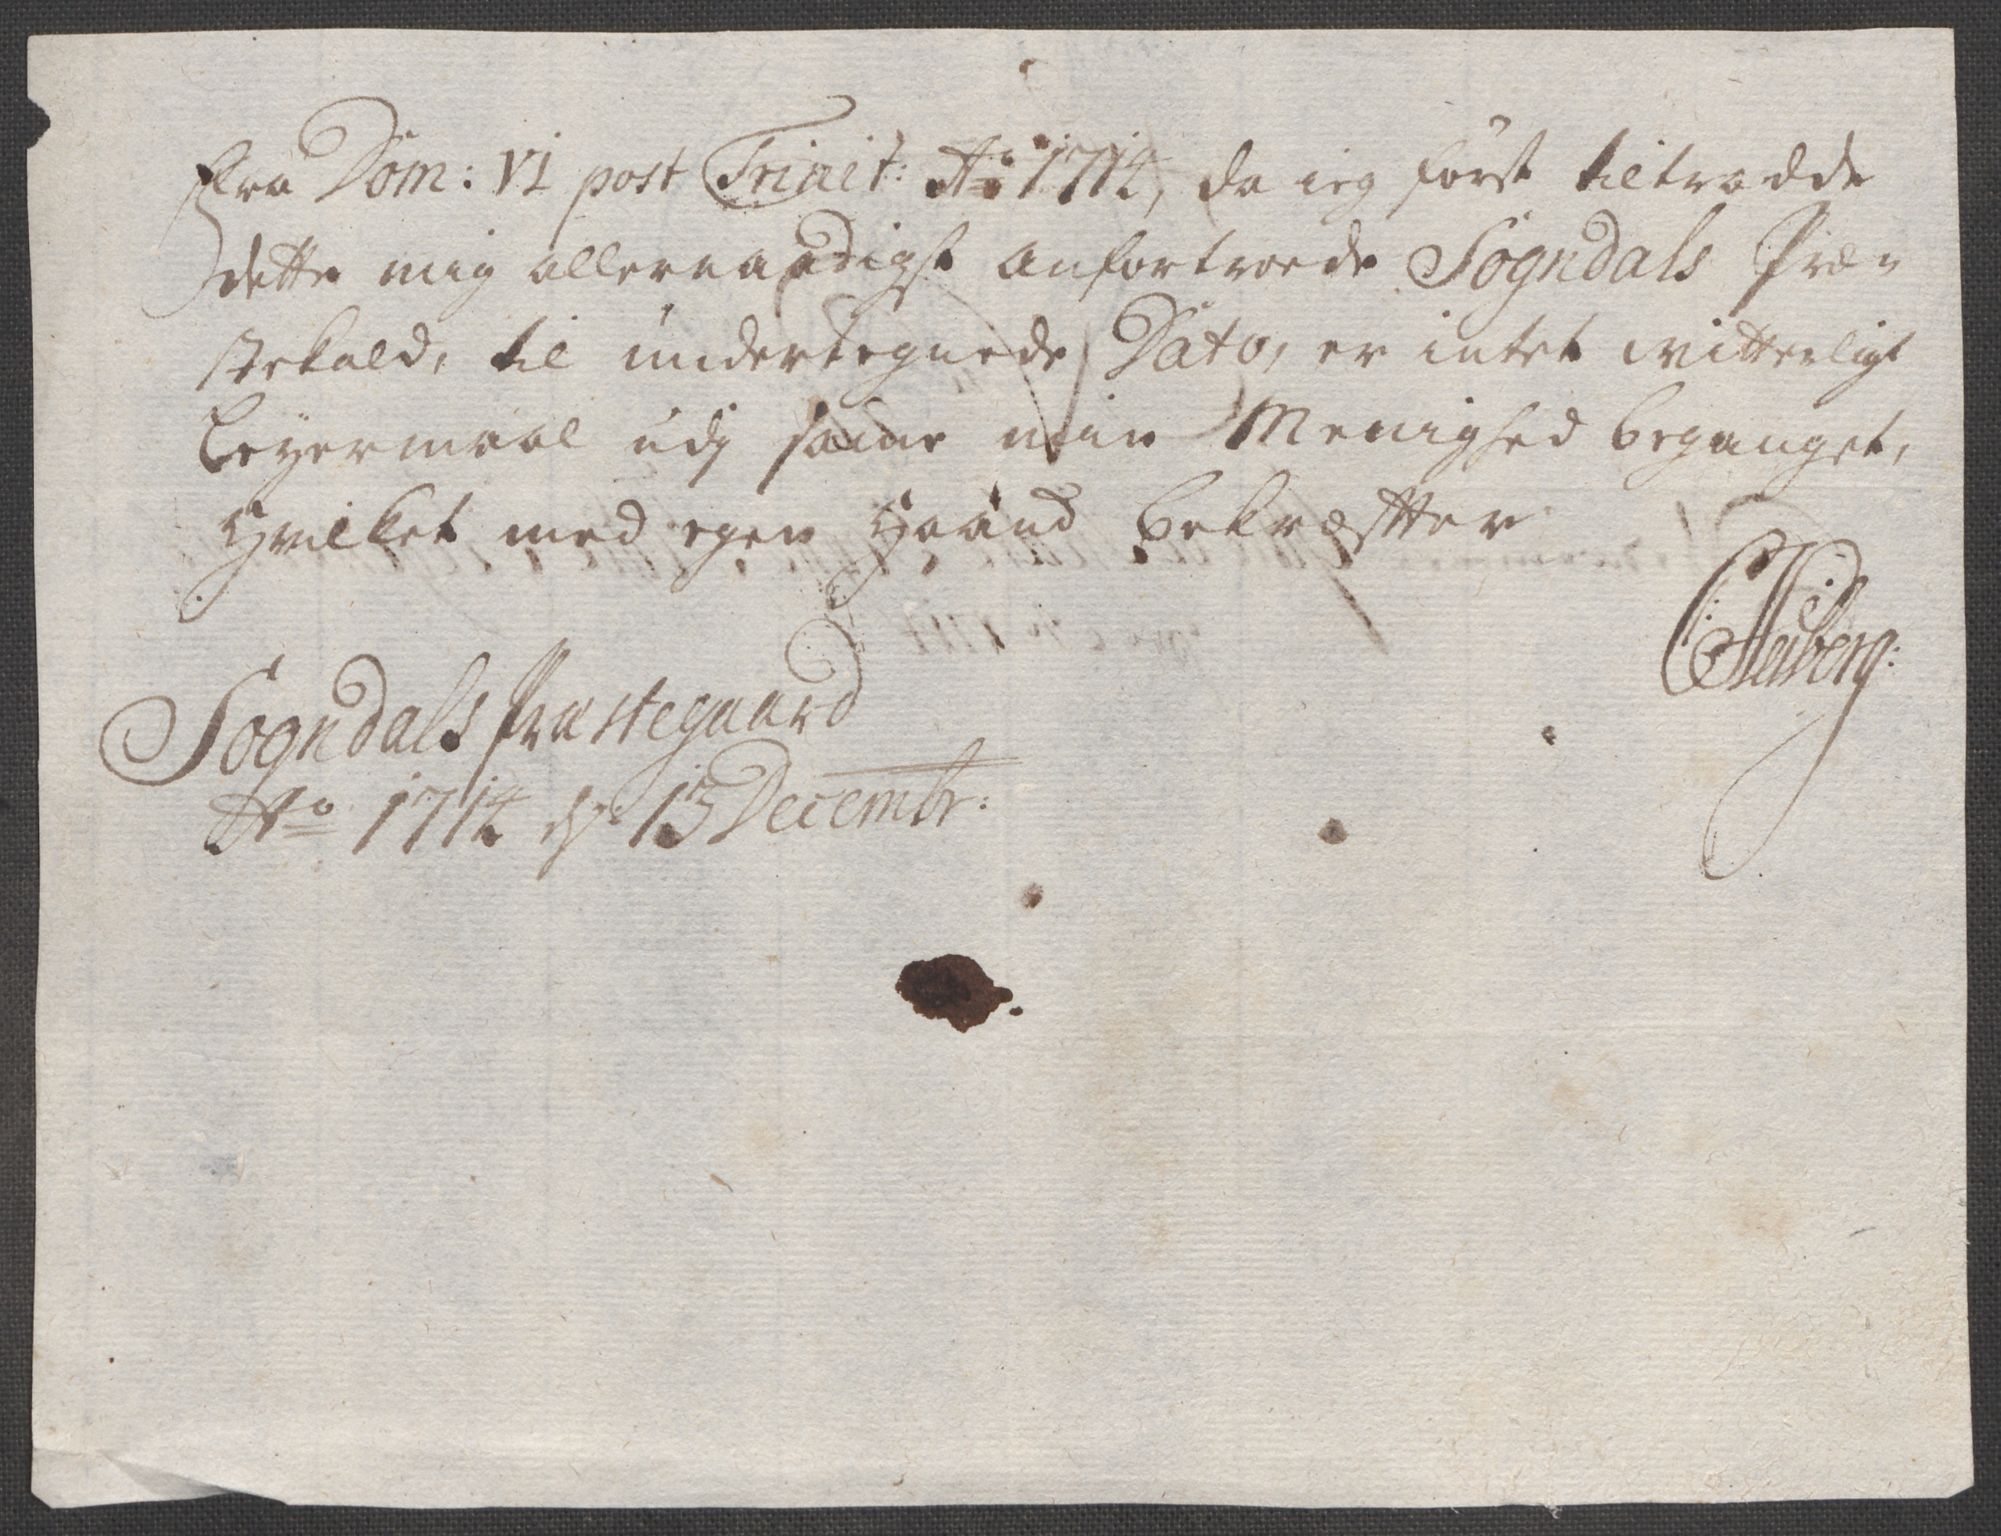 Fra Dom: VI post Trinit: Ao 1714, da ieg først tiltradde
dette mig allernaadigst anfortroede Sogndals Præ-
stekald, til undertegnede Dato, er intet vitterligt
Leyermaal udj samme min Menighed begaaget,
Hvilket med egen Haand bekræffter
CHeiberg:
Sogndals Præstegaard
Ao 1714 d. 13 Decembr: